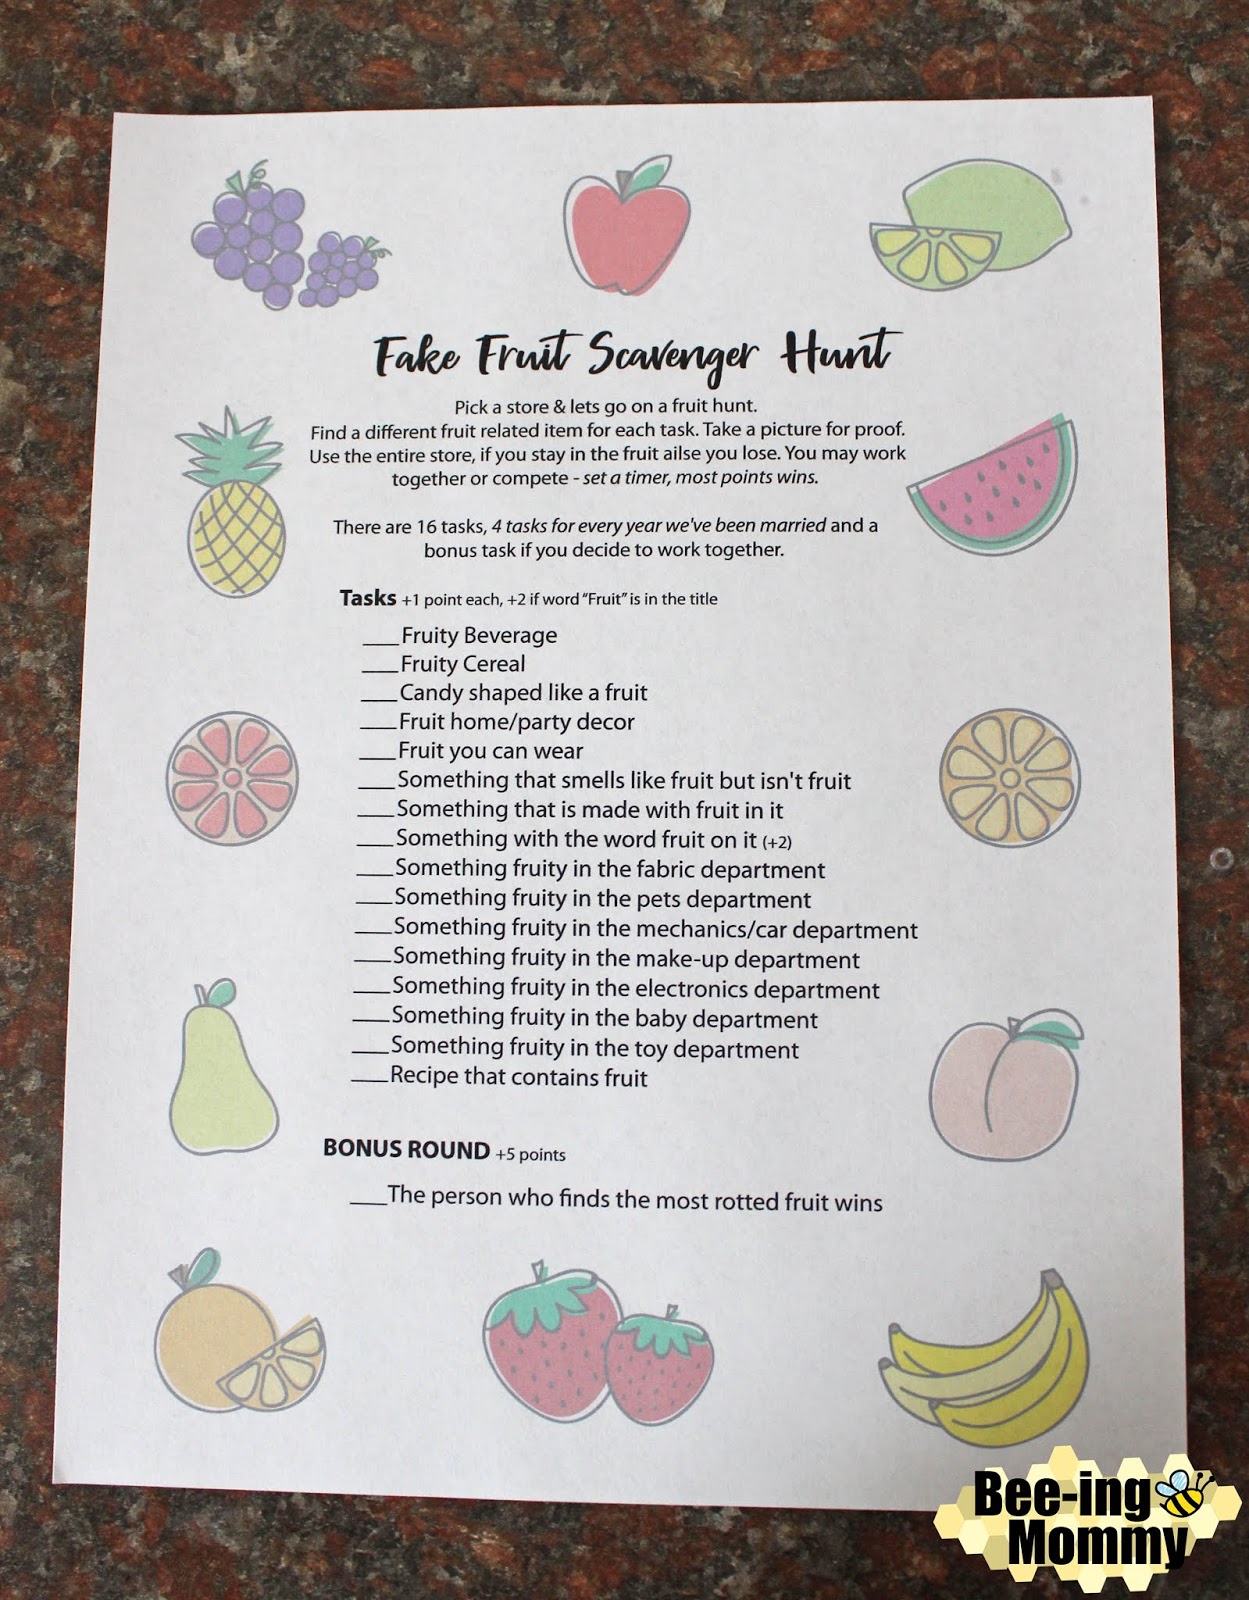 Fake Fruit Scavenger Hunt
Pick a store & lets go on a fruit hunt.
Find a different fruit related item for each task. Take a picture for proof.
Use the entire store, if you stay in the fruit ailse you lose. You may work
together or compete - set a timer, most points wins.
There are 16 tasks, 4 tasks for every year we've been married and a
bonus task if you decide to work together.
Tasks +1 point each, +2 if word "Fruit" is in the title
___Fruity Beverage
___Fruity Cereal
___Candy shaped like a fruit
___Fruit home/party decor
___Fruit you can wear
___Something that smells like fruit but isn't fruit
___Something that is made with fruit in it
___Something with the word fruit on it (+2)
___Something fruity in the fabric department
___Something fruity in the pets department
___Something fruity in the mechanics/car department
___Something fruity in the make-up department
___Something fruity in the electronics department
___Something fruity in the baby department
___Something fruity in the toy department
___Recipe that contains fruit
BONUS ROUND +5 points
___The person who finds the most rotted fruit wins
Bee-ing
Mommy